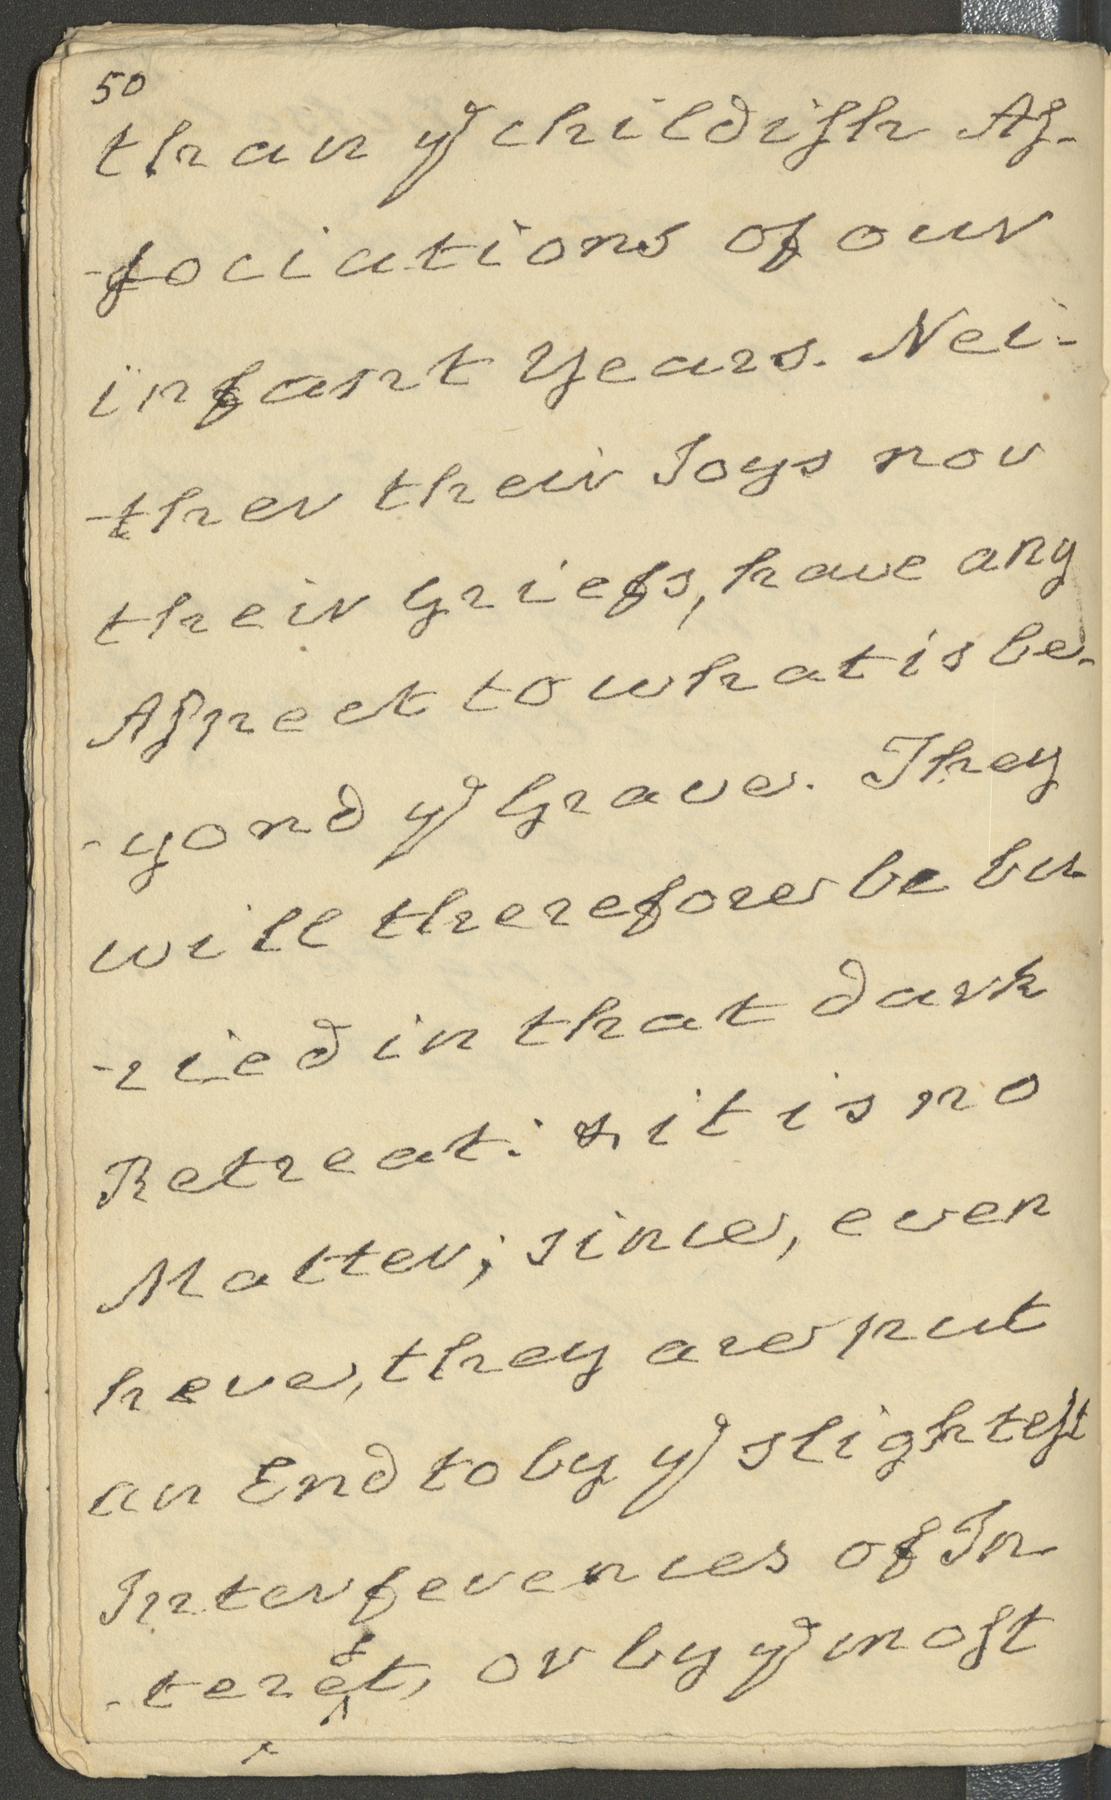 50
than ye childiſh Aſ-
-ſociations of our
infant Years. Nei-
-ther their Joys nor
their Griefs, have any
Aſpect to what is be-
-yond ye Grave. They
will therefore be bu-
-ried in that dark
Retreat: & it is no
Matter; since, even
here, they are put
an End to by ye slighteſt
Interferences of In
-tereſt, or by ye moſt